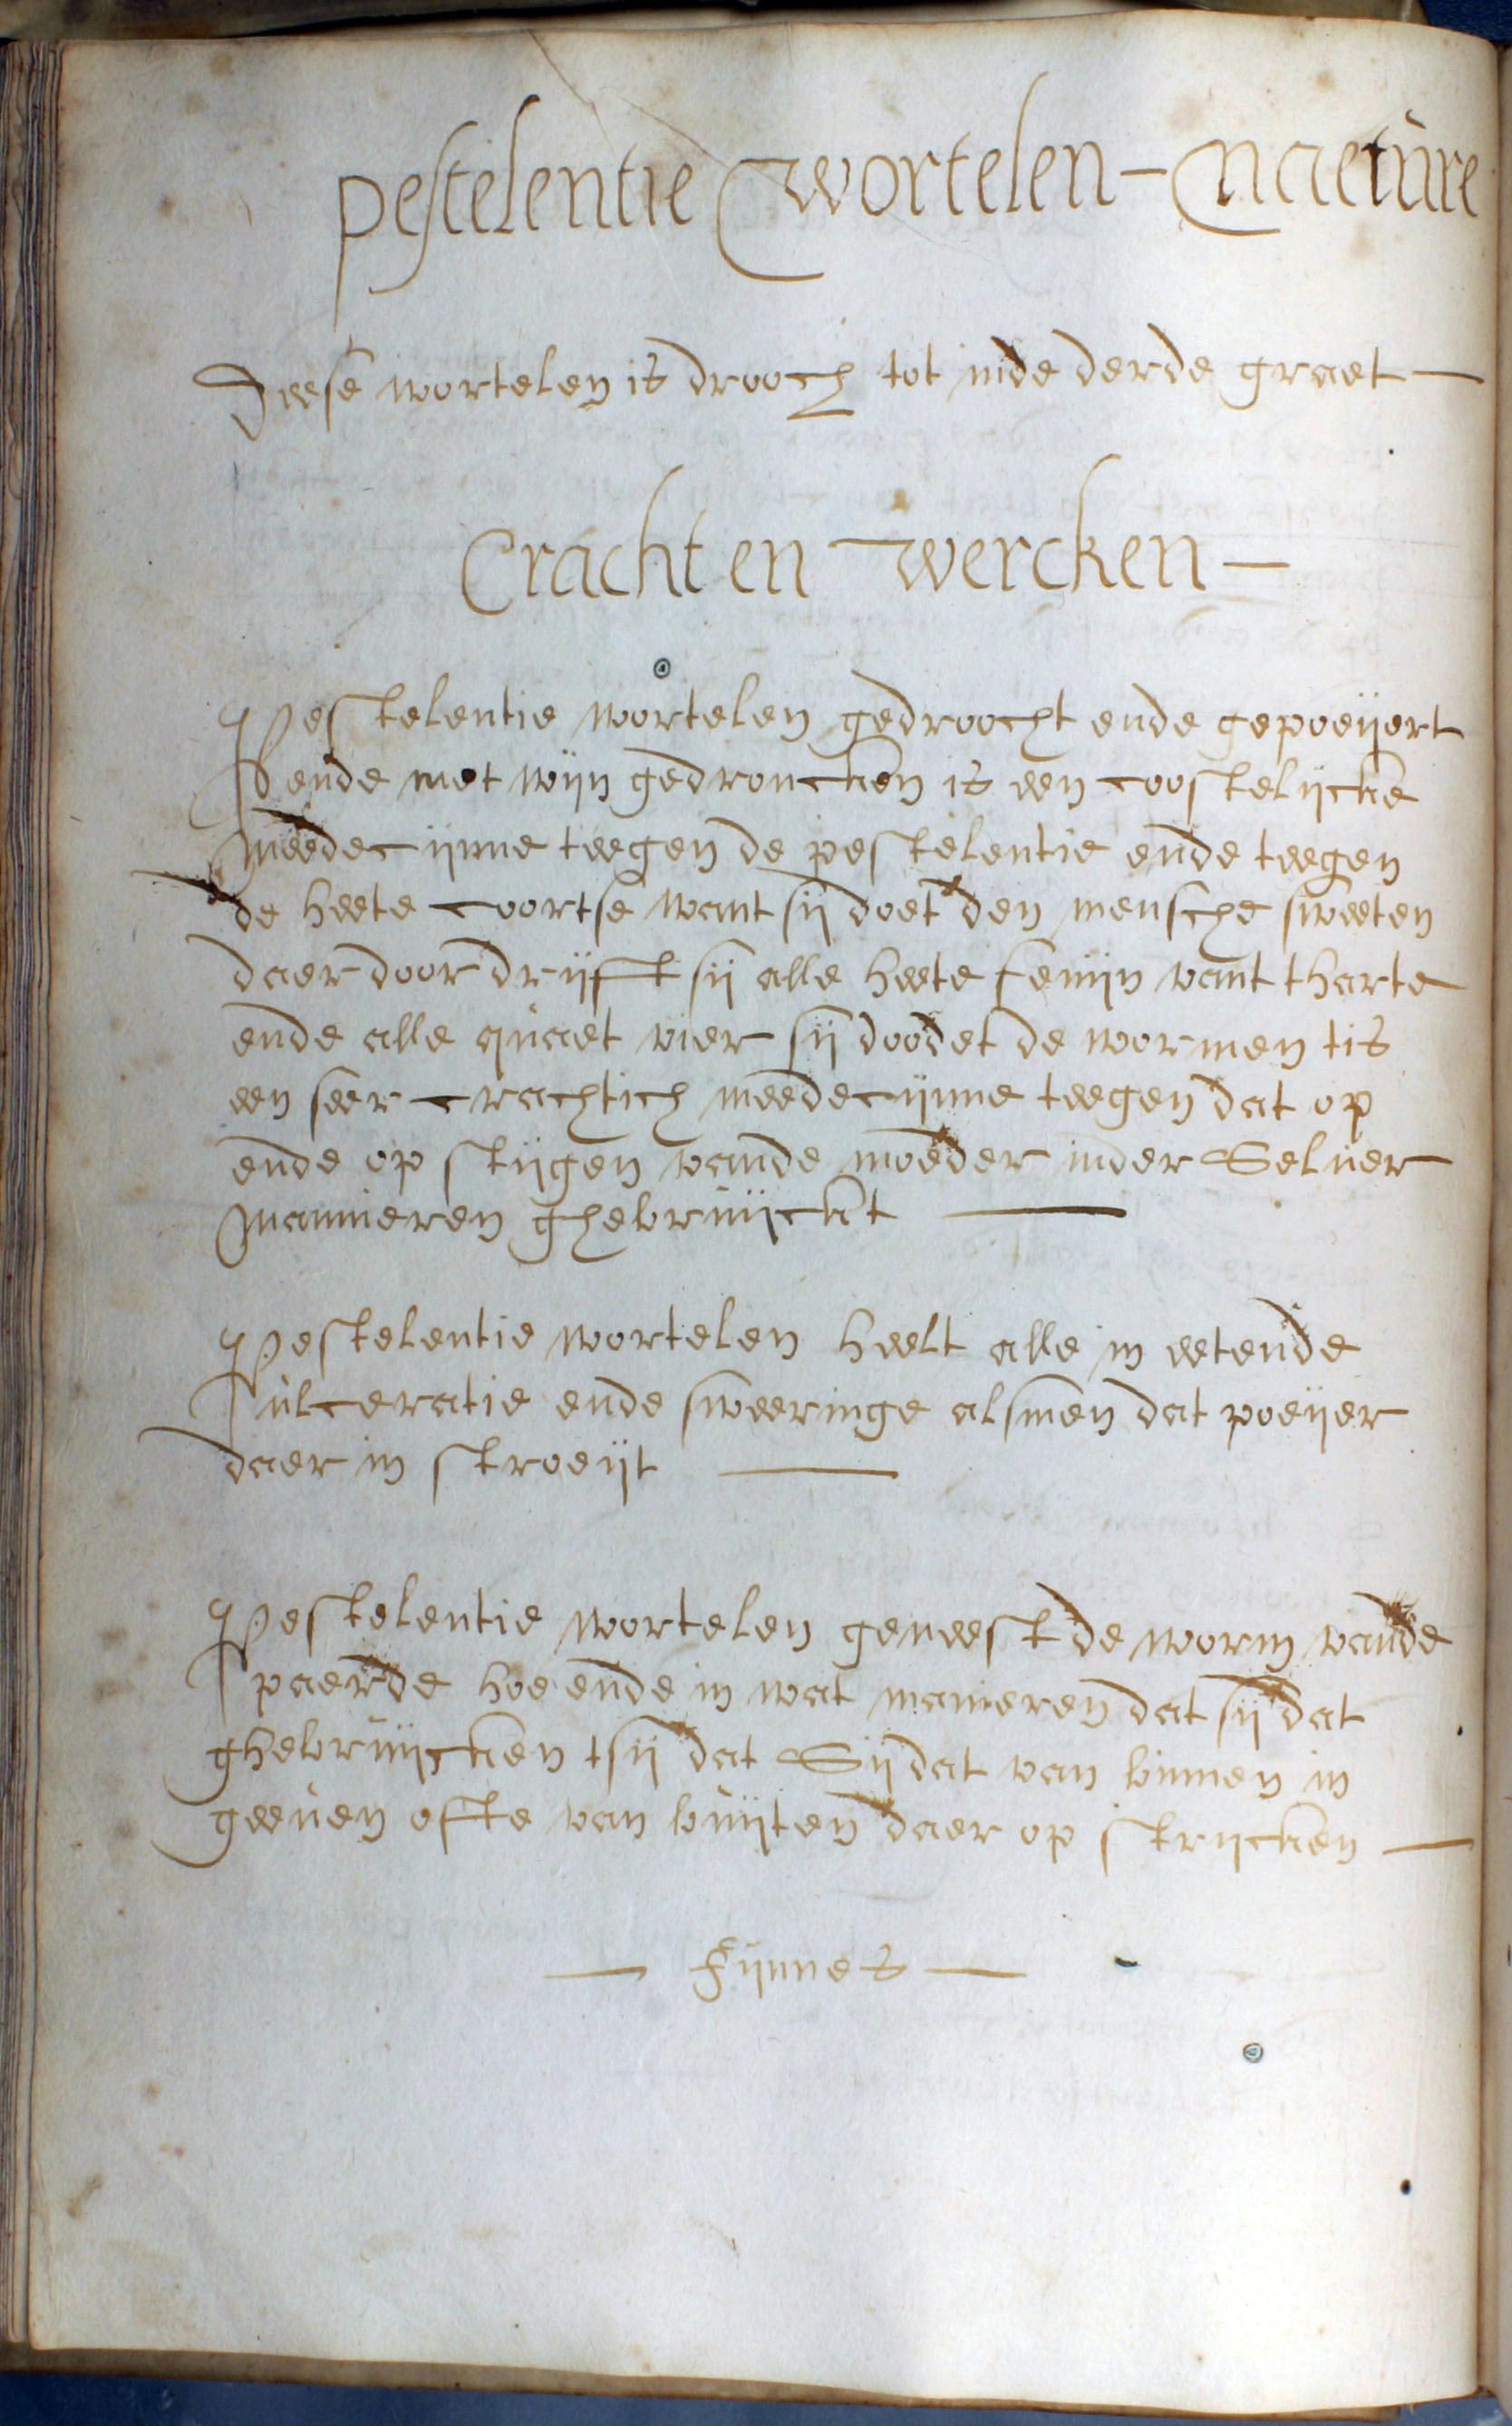 pestelentie wortelen - naetúre
Deese wortelen is drooch tot inde derde graet -
Cracht en wercken -
Pestelentie wortelen gedroocht ende gepoeijert
ende met wijn gedroncken is een coostelijcke
meedecijnne teegen de pestelentie ende teegen
de heete coortse want sij doet den mensche sweeten
daer door drijft sij alle heete fenijn vant tharte
ende alle qúaet vier sij doodet de wormen tis
een seer crachtich meedecijnne teegen dat op
ende op stijgen vande moeder inder Selúer
mannieren ghebrúijckt -
Pestelentie wortelen heelt alle in eetende
úlceratie ende sweeringe alsmen dat poeijer
daer in stroeijt -
Pestelentie wortelen geneest de worm vande
paerde hoe ende in wat manieren dat sij dat
ghebrúijcken tsij dat Sij dat van binnen in
geeúen ofte van búijten daer op strijcken -
- Fijnnes -